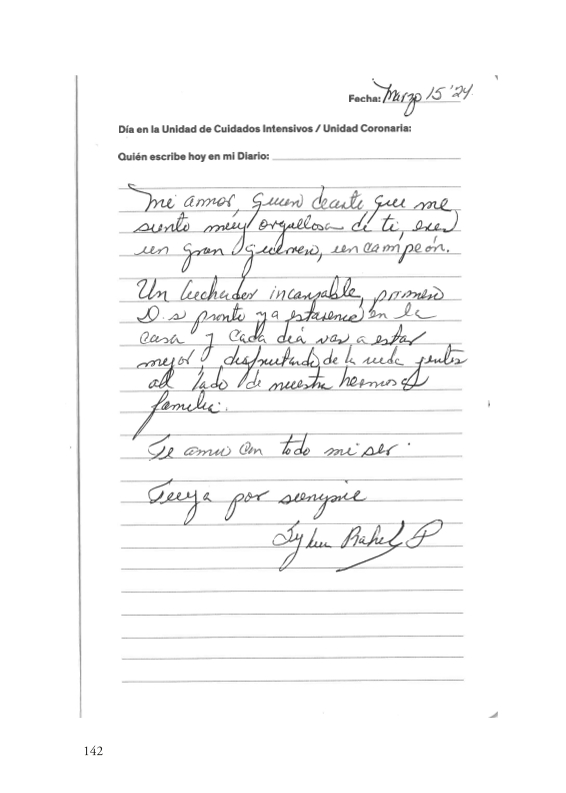 Fecha: Marzo 15 '24
Día en la Unidad de Cuidados Intensivos / Unidad Coronaria:
Quién escribe hoy en mi Diario:
Mi amor, quien decirte que me
siento muy orgullosa de ti, eres
un gran guerrero, un campeón.
Un luchador incansable, primero
D.s pronto ya estaremos en la
casa y cada día vas a estar
mejor, disfrutando de la vida juntos
al lado de nuestra hermosa
familia.
Te amo con todo mi ser.
Tuya por siempre
142